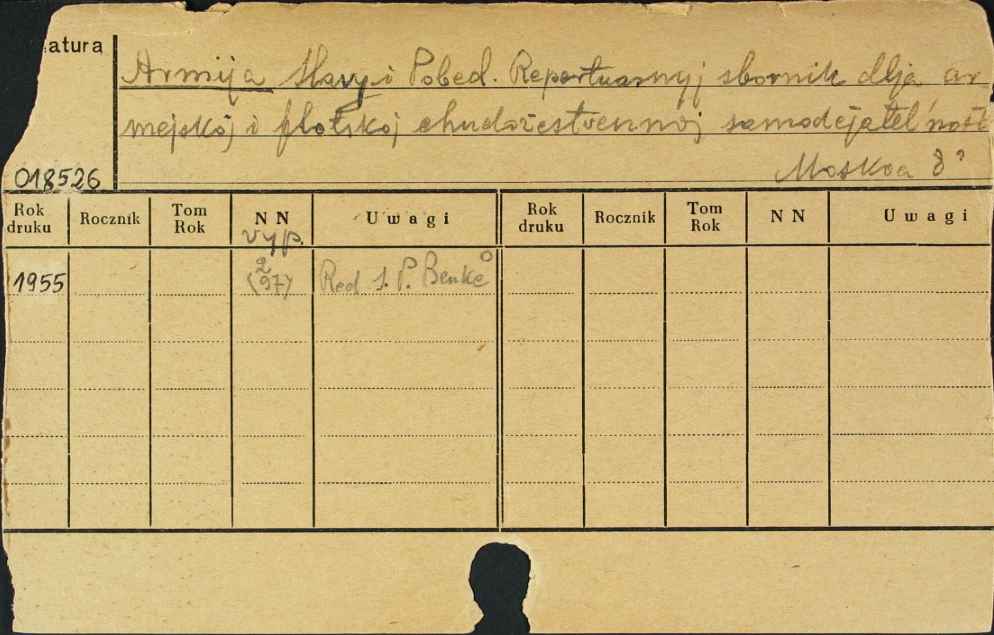 atura
Armija Slavy i Pobed. Repertuarnyj sbornik dlja ar
mejskoj i flotskoj chudožestvennoj samodejatel'nost
018526 Moskva 8°
Rok druku Rocznik Tom Rok NN Uwagi Rok druku Rocznik Tom Rok NN Uwagi
vyp.
1955 2 (97) Red S. P. Benke